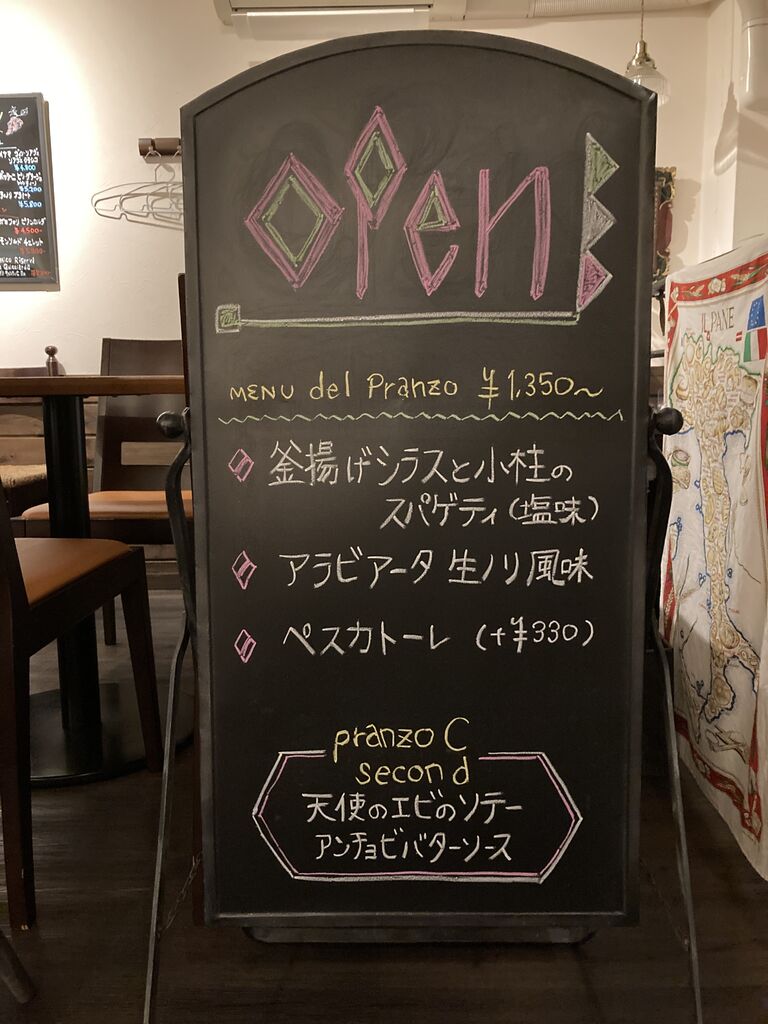 open
MENU del Pranzo ¥1,350～
釜揚げシラスと小柱の
スパゲティ(塩味)
アラビアータ 生ノリ風味
ペスカトーレ (+¥330)
pranzo C
second
天使のエビのソテー
アンチョビバターソース
¥4,800
¥5,200
¥5,800
¥4,500-
IL PANE